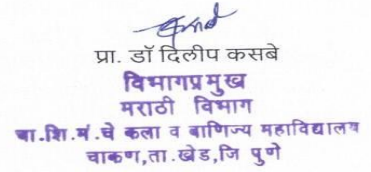 प्रा. डॉ दिलीप कसबे
विभागप्रमुख
मराठी विभाग
वा.शि.मं.चे कला व वाणिज्य महाविद्यालय
चाकण,ता.खेड,जि पुणे